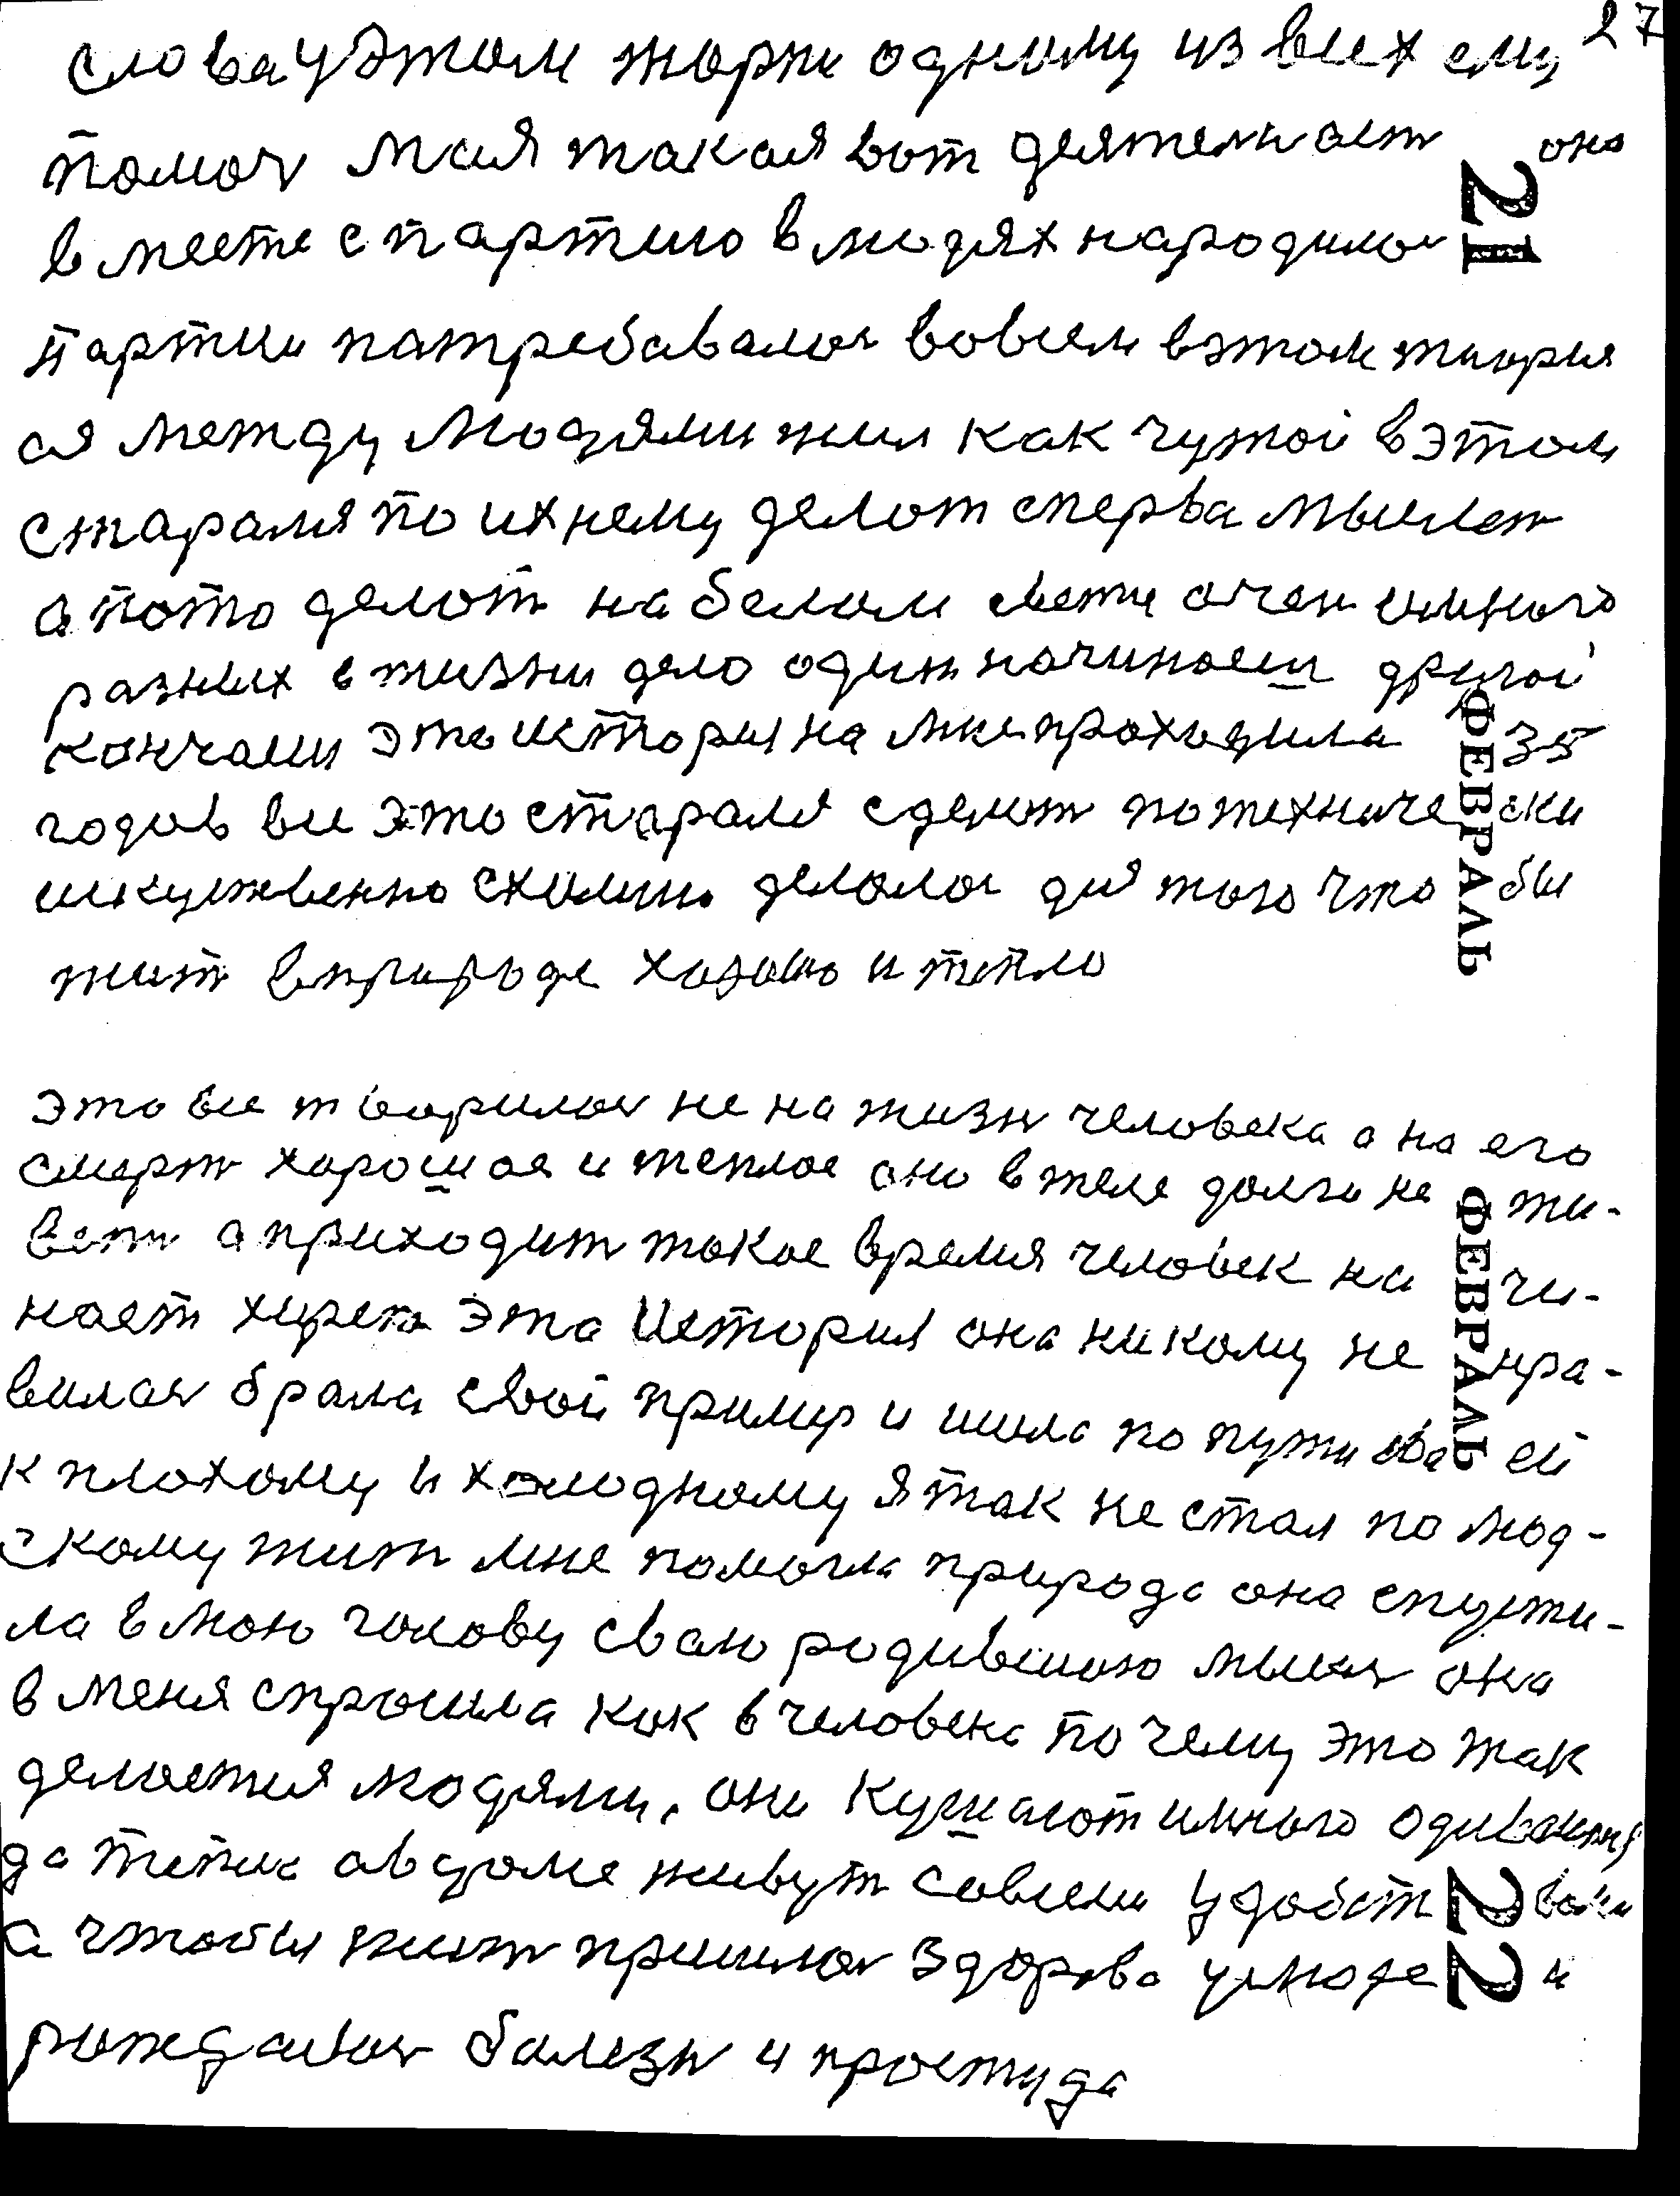 27
слова у этом морже одному из всех ему
помоч мая такая вот деятельност оно
21
вместе с партию в людях народилос
партии патребавалос вовсем в этом
ся между людями жил как чужой в этом
старался по ихнему делот сперва мыслет
а пото делот на белом свете очен имного
разных в жизни дело один начинаеш другой
кончаеш это история на мне проходила 35
годов все это старался сделот по технически
искуственно схимию делолос для того что бы
жит в природе хорошо и тепло
ФЕВРАЛЬ
это все творилос не на жизн человека а на его
смерт хорошое и теплое оно в теле долго не жи-
вет а приходит такое время человек на чи-
нает хирет эта История она никому не нра-
вилас брала свой пример и шла по пути сваей
к плохому и холодному я так не стал по люд-
скому жит мне помогла природа она спусти-
ла в мою голову сваю родившою мысл она
в меня спросила как в человека по чему это так
делается людями, они кушают имного одиваются
до тепла а в доме живут совсем удобствами
а чтобы жит пришлос здорово у люде и
рождалос болезн и простуда
ФЕВРАЛЬ
22